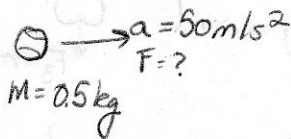 a = 50m/s²
F = ?
M = 0.5kg